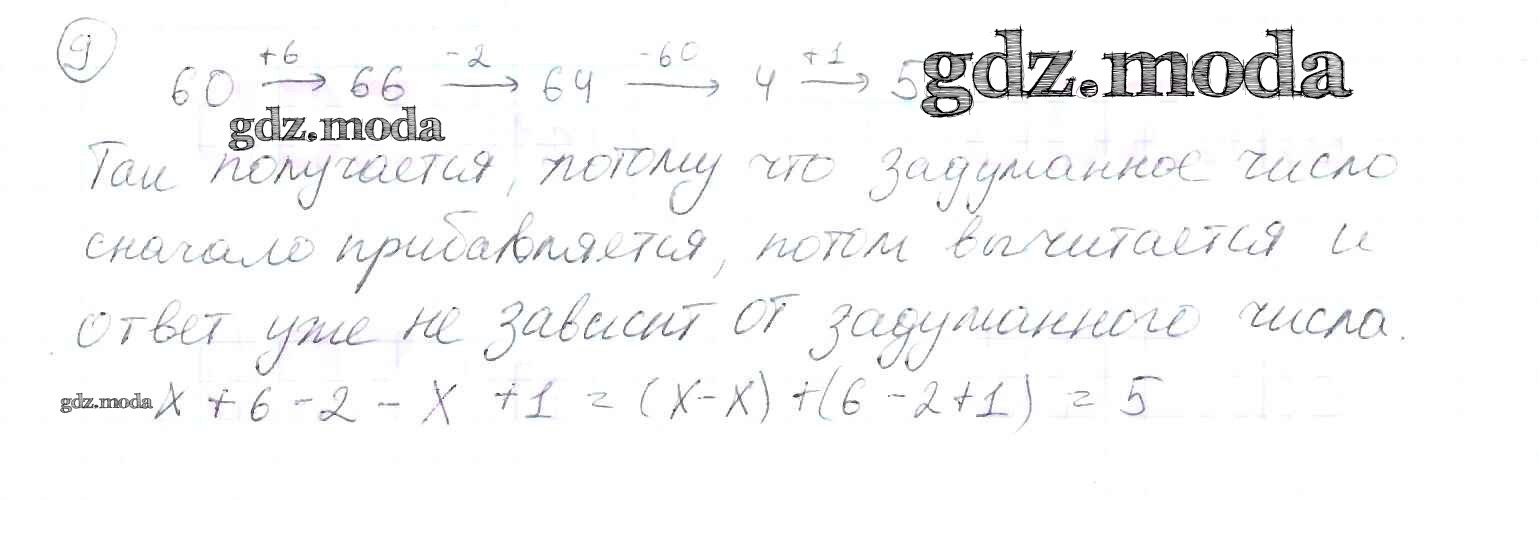 9
60 +6→ 66 -2→ 64 -60→ 4 +1→ 5 gdz.moda
gdz.moda
Так получается, потому что задуманное число
сначало прибавляется, потом вычитается и
ответ уже не зависит от задуманного числа.
gdz.moda x + 6 - 2 - x + 1 = (x - x) + (6 - 2 + 1) = 5